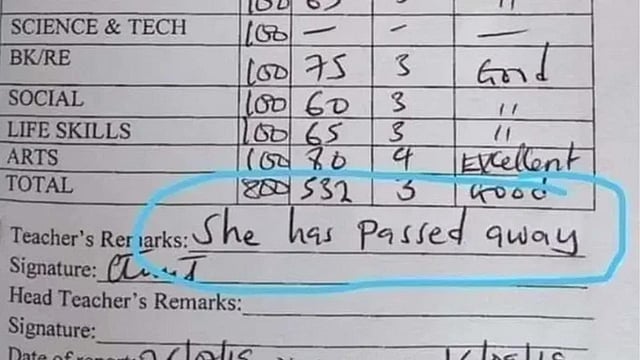 100 65 "
SCIENCE & TECH 100 — — —
BK/RE 100 75 3 Good
SOCIAL 100 60 3 "
LIFE SKILLS 100 65 3 "
ARTS 100 80 4 Excellent
TOTAL 800 532 3 GOOD
Teacher's Remarks: She has passed away
Signature:
Head Teacher's Remarks:
Signature:
Date of